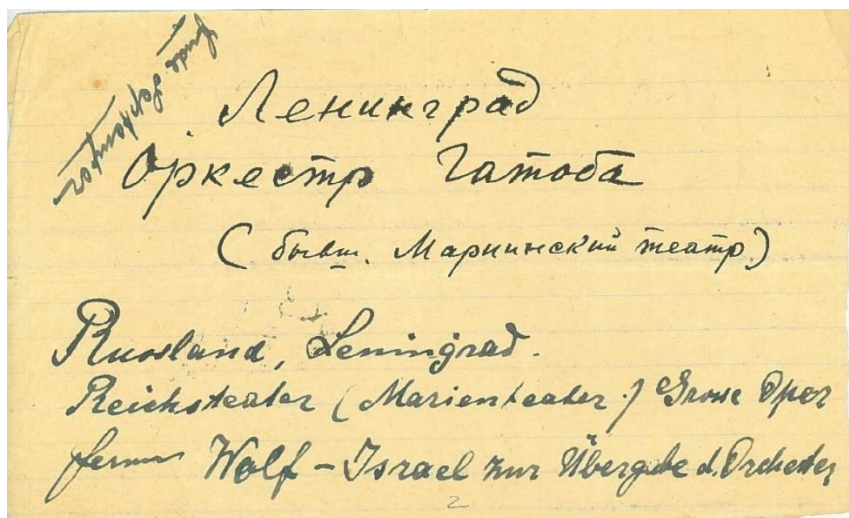 Ленинград
Оркестр Гатоба
(бывш. Мариинский театр)
Russland, Leningrad.
Reichsteater (Marienteater) Grosse Oper
Wolf-Israel zur Übergabe d. Orchester
2